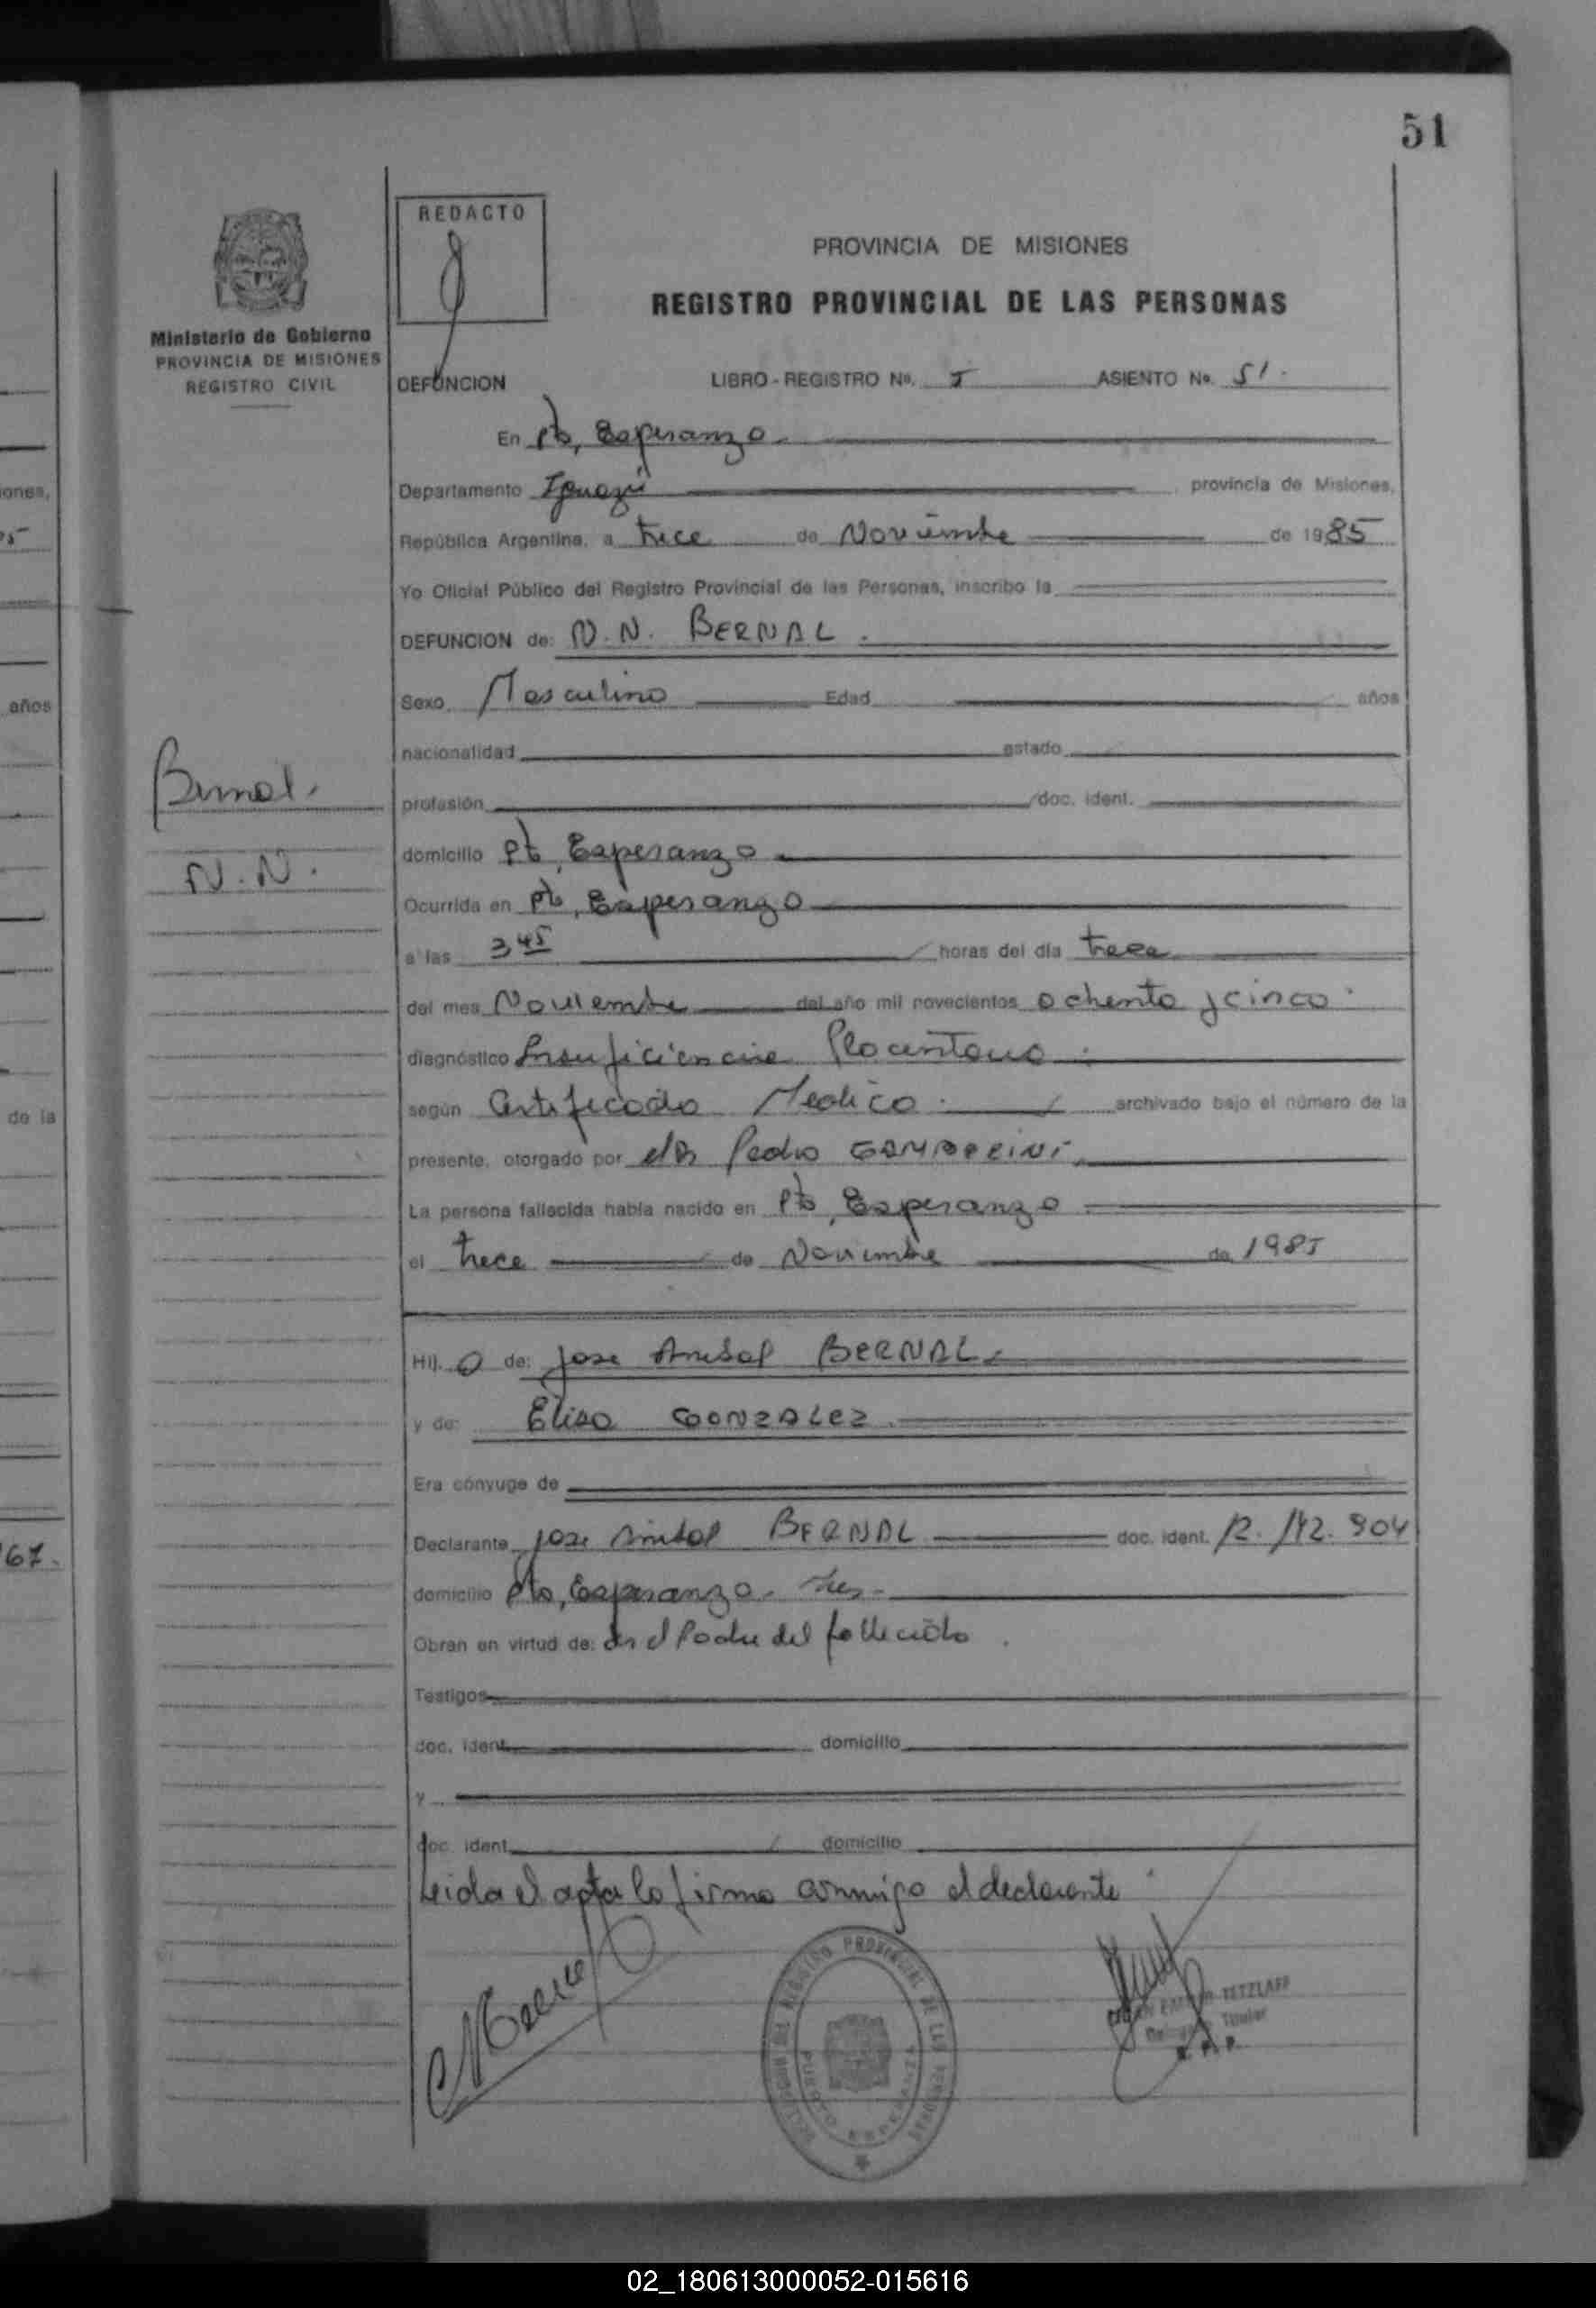 51
REDACTO
PROVINCIA DE MISIONES
REGISTRO PROVINCIAL DE LAS PERSONAS
Ministerio de Gobierno
PROVINCIA DE MISIONES
REGISTRO CIVIL
DEFUNCION LIBRO - REGISTRO No. I ASIENTO No. 51.
En Pto, Esperanza.
Departamento Iguazú provincia de Misiones,
República Argentina, a trece de Noviembre de 1985
Yo Oficial Público del Registro Provincial de las Personas, inscribo la
DEFUNCION de: N.N. BERNAL.
Sexo Masculino Edad años
nacionalidad estado
Bernal.
profesión doc. ident.
domicilio Pto, Esperanza
N.N.
Ocurrida en Pto, Esperanza
a las 3 45 horas del día trece
del mes Noviembre del año mil novecientos ochenta y cinco.
diagnóstico Insuficiencia Placentaria.
según Certificado Medico. archivado bajo el número de la
presente, otorgado por el Dr Pedro
La persona fallecida había nacido en Pto, Esperanza
el trece de Noviembre de 1985
Hij. o de: Jose Anibal BERNAL.
y de: Elisa GONZALEZ.
Era cónyuge de
Declarante Jose Anibal BERNAL doc. ident. 12.142.904
domicilio Pto, Esperanza.
Obran en virtud de: ser el Padre del fallecido.
Testigos
doc. ident. domicilio
y
doc. ident. domicilio
Leida el acta la firma conmigo el declarante.
REGISTRO PROVINCIAL DE LAS PERSONAS
PUERTO ESPERANZA
TETZLAFF
Titular
R.P.P.
ones,
años
de la
67.
02_180613000052-015616